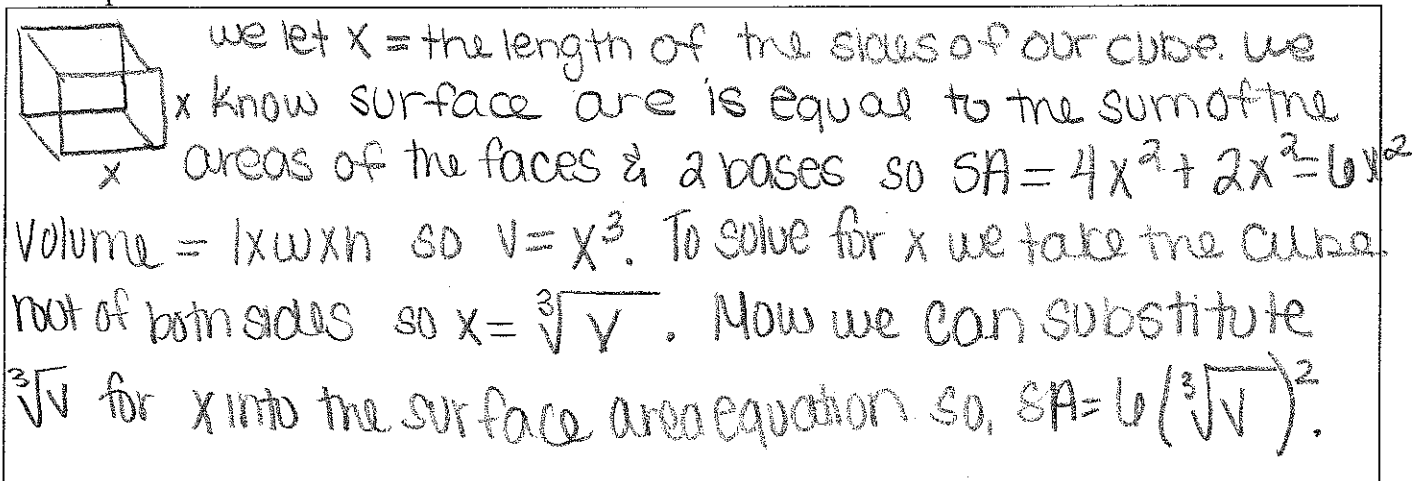 we let x = the length of the sides of our cube. we
x know surface are is equal to the sum of the
x areas of the faces & 2 bases so SA = 4x² + 2x² = 6x²
Volume = l x w x h so V = x³. To solve for x we take the cube
root of both sides so x = ∛V. Now we can substitute
∛V for x into the surface area equation so, SA = 6(∛V)².